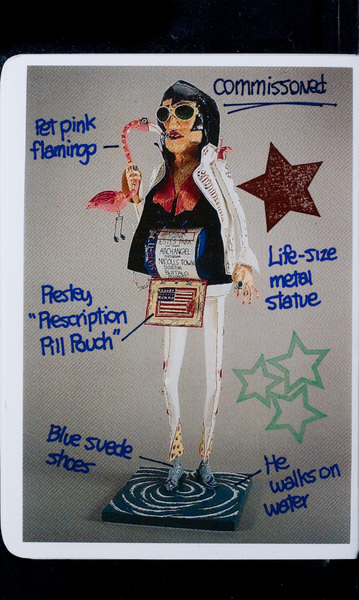 commissoned
Pet pink
flamingo
ARCHANGEL
NICOLLS TOWN
BUFFALO
Life-size
metal
statue
Presley,
"Prescription
Pill Pouch"
Blue suede
shoes
He
walks on
water